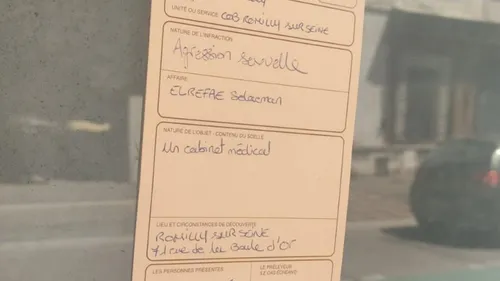 UNITÉ OU SERVICE : COB ROMILLY SUR SEINE
NATURE DE L'INFRACTION
Agression sexuelle
AFFAIRE
EL REFAE Solaeman
NATURE DE L'OBJET - CONTENU DU SCELLÉ
Un cabinet médical
LIEU ET CIRCONSTANCES DE DÉCOUVERTE
ROMILLY SUR SEINE
71 rue de la Boule d'Or
LES PERSONNES PRÉSENTES
LE PRÉLEVEUR